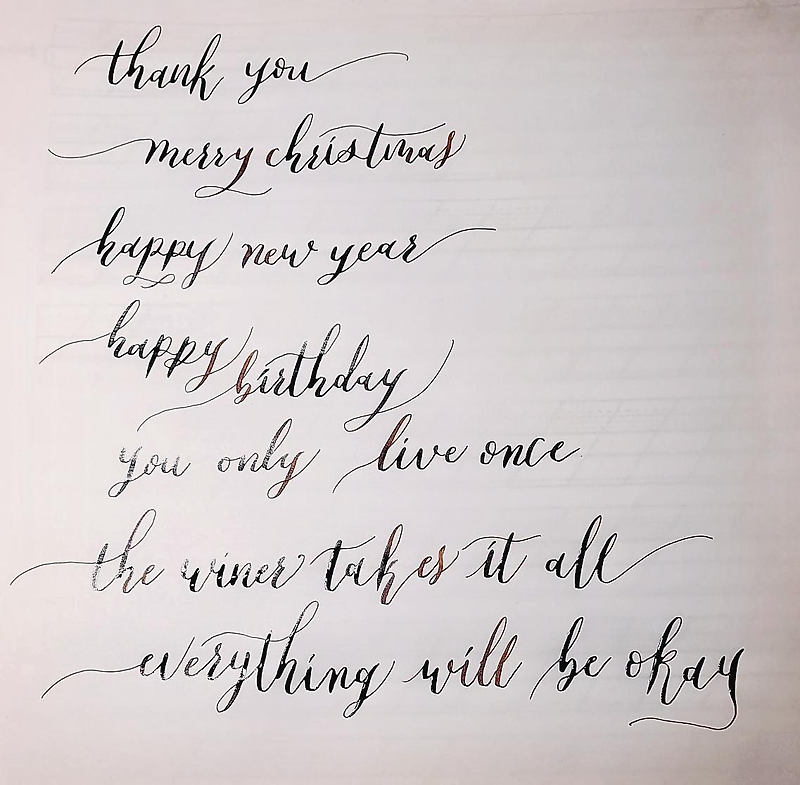 thank you
merry christmas
happy new year
happy birthday
you only live once
the winer takes it all
everything will be okay